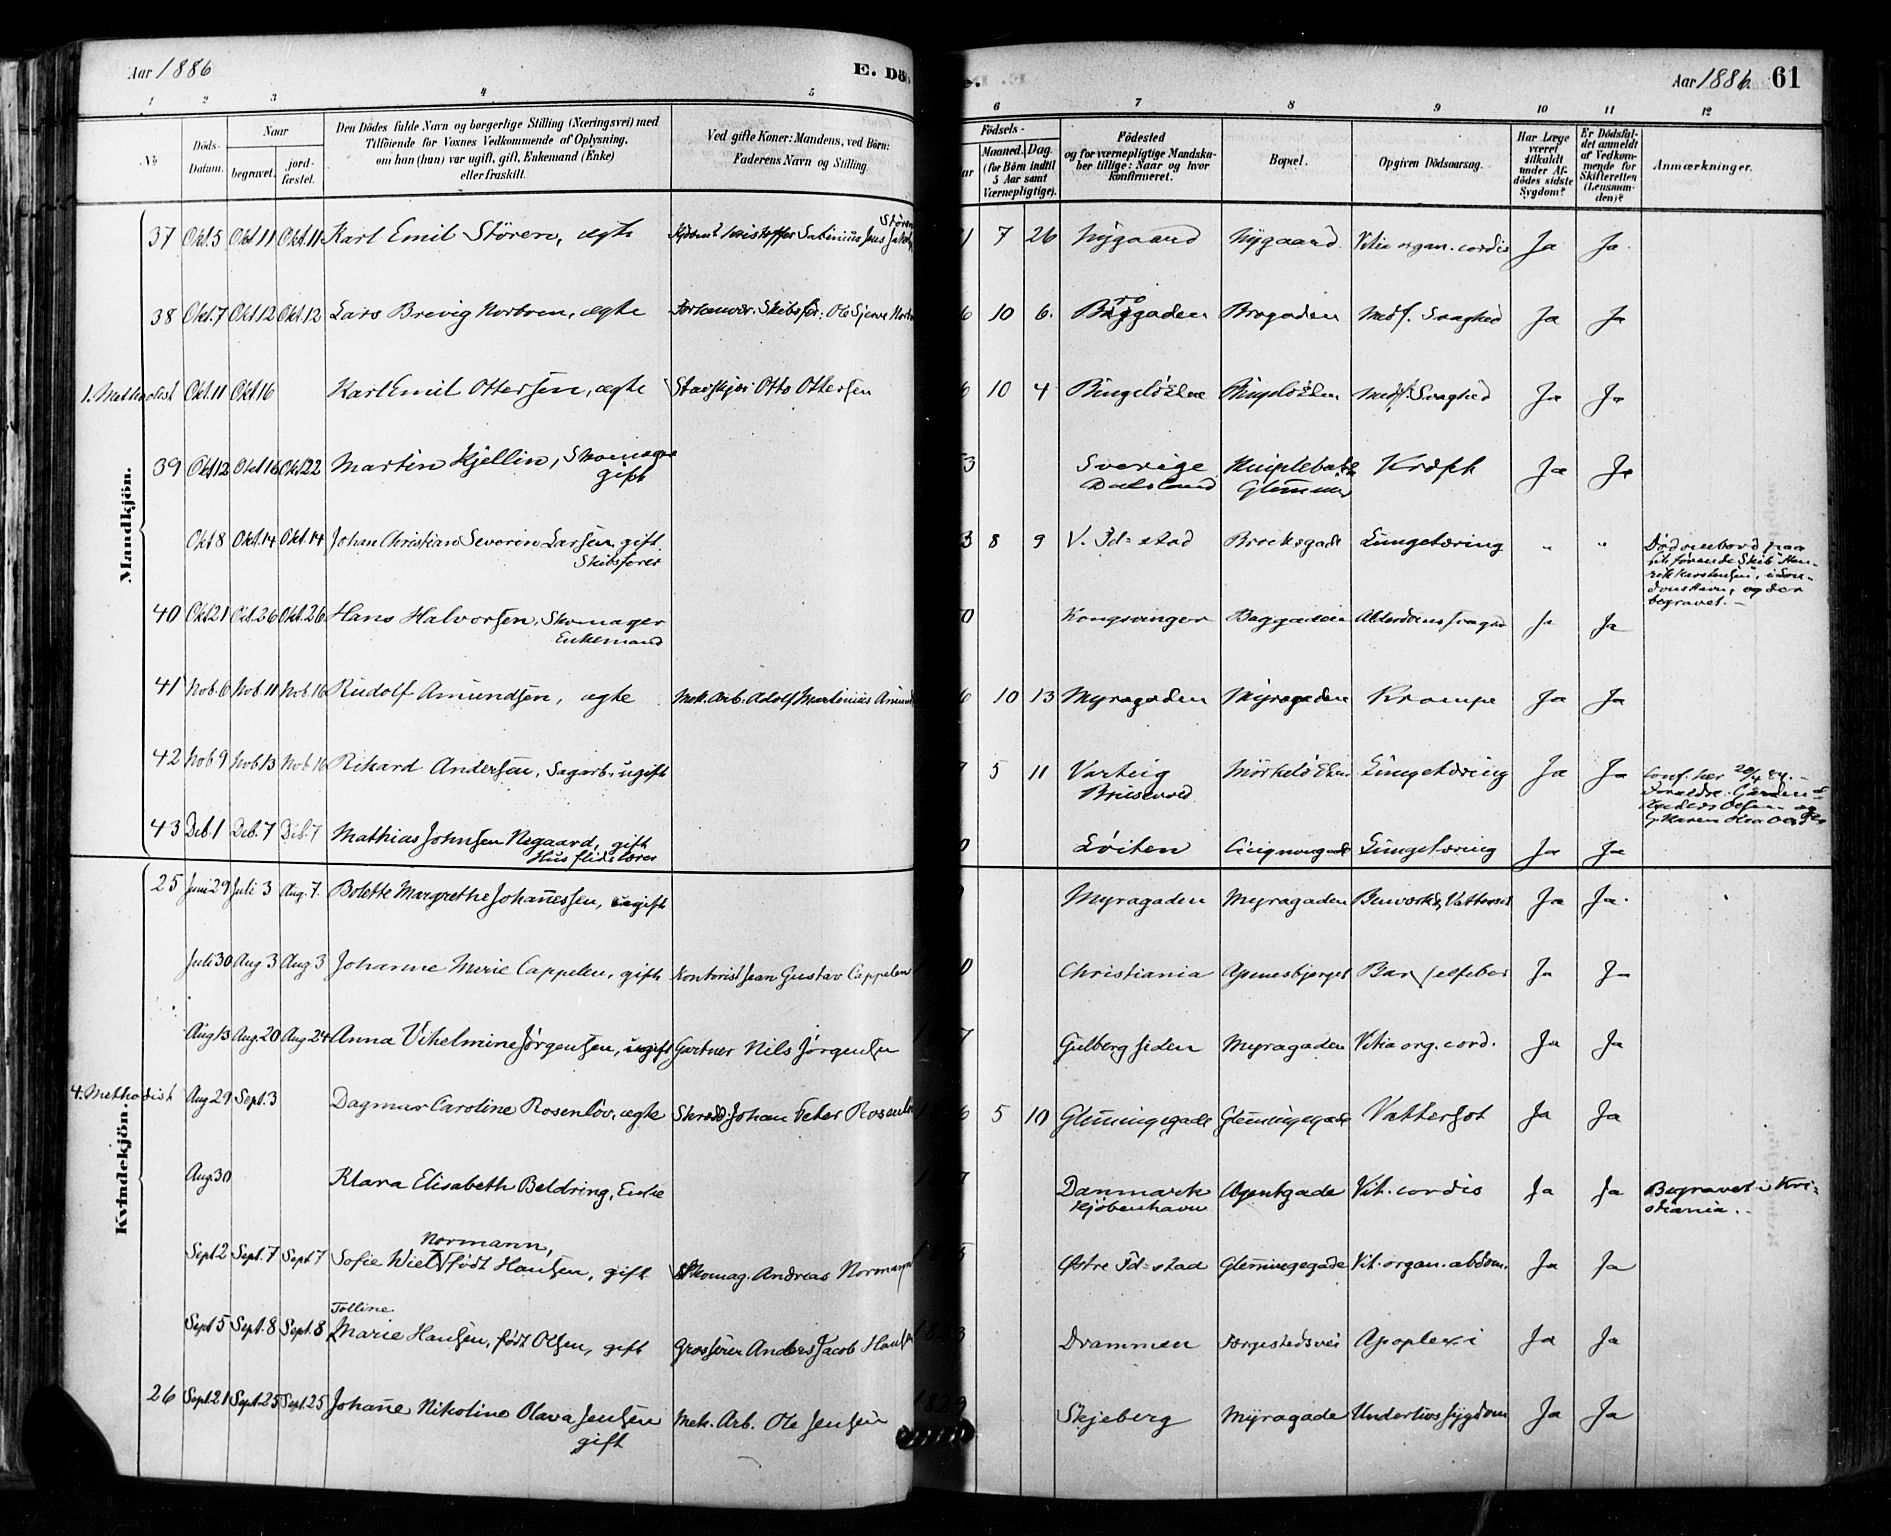 Aar 1886
E. Dø
e.
Aar 1886. 61
1 2 3 4 5 6 7 8 9 10 11 12
No
Døds-Datum.
Naar
begravet.
jord-fæstet.
Den Dødes fulde Navn og borgerlige Stilling (Næringsvei) med
Tilføiende for Voxnes Vedkommende af Oplysning,
om han (hun) var ugift, gift, Enkemand (Enke)
eller fraskilt.
Ved gifte Koner: Mandens, ved Børn:
Faderens Navn og Stilling.
Fødsels-
Maaned. Dag.
(for Børn indtil
5 Aar samt
Værnepligtige).
Fødested
og for værnepligtige Mandska-
ber tillige: Naar og hvor
konfirmeret.
Bopæl.
Opgiven Dødsaarsag.
Har Læge
været
tilkaldt
under Af-
dødes sidste
Sygdom?
Er Dødsfal-
det anmeldt
af Vedkom-
mende for
Skifteretten
(Lensman-
den)?
Anmærkninger.
Mandkjøn.
37 Okt. 5 Okt 11 Okt. 11 Karl Emil Støren, ægte Støren 7 26 Nygaard Nygaard Vitia organ. cordis Ja Ja.
38 Okt. 7 Okt 12 Okt. 12 Lars Brevig Norbom, ægte 10 6. Brogaden Brogaden Medf. Svaghed Ja Ja
1. Methodist Okt. 11 Okt 16 Karl Emil Ottersen, ægte Otto Ottersen 10 4 Medf. Svaghed Ja Ja
39 Okt 12 Okt 16 Okt. 22 Martin Kjellin, Skomager
gift 3 Sverige
Dalsland Glemminge Kræft Ja Ja
Okt 8 Okt. 14 Okt. 14 Johan Christian Severin Larsen, gift
Skibsfører 3 8 9 V. Id-stad Brocksgade Lungetæring " " Død ombord paa
førende Skib Hen-
rik Karstensen, i Lon-
dons Havn, og der
begravet.
40 Okt 21 Okt. 26 Okt. 26 Hans Halvorsen, Skomager
Enkemand 0 Kongsvinger Baggaden Alderdomssvaghed Ja Ja
41 Nob. 6 Nob. 11 Nob. 16 Rudolf Amundsen, ægte Mek. Arb. Adolf Martinius Amund 6 10 13 Myragaden Myragaden Krampe Ja Ja
42 Nob 9 Nob. 13 Nob 16 Rikard Andersen, Sagarb. ugift 5 11 Varteig Lungetæring Ja Ja Conf. her
43 Deb. 1 Deb. 7 Deb. 7 Mathias Johnsen Negaard, gift
Husflidslærer 0 Løiten Lungetæring Ja Ja
Kvindekjøn.
25 Juni 29 Juli 3 Aug. 7 Bolette Margrethe Johannessen, ugift Myragaden Myragaden Ja Ja.
Juli 30 Aug 3 Aug 3 Johanne Marie Cappelen, gift Kontorist Jean Gustav Cappelen 0 Christiania Apenesbjerget Barselfeber Ja Ja
Aug 13 Aug. 20 Aug 24 Anna Vilhelmine Jørgensen, ugift Gartner Nils Jørgensen 7 Gulbergsiden Myragaden Vitia org. cord. Ja Ja
4. Methodist Aug 29 Sept. 3 Dagmar Caroline Rosenløv, ægte Skræd. Johan Peter Rosenløv 6 5 10 Glemmingegade Glemmingegade Vattersot Ja Ja
Aug. 30 Klara Elisabeth Beldring, Enke Danmark
Kjøbenhavn Agentgade Vit. cordis Ja Ja Begravet i Kri-
stiania.
Sept. 2 Sept. 7 Sept 7 Normann,
Sofie født Hansen, gift Skomag. Andreas Normann Østre Id-stad Glemmingegade Vit. organ. abdom. Ja Ja
Sept 5 Sept. 8 Sept. 8 Tolline
Marie Hansen, født Olsen, gift Grosserer Anders Jacob Hansen Drammen Færgestedsvei Apoplexi Ja Ja
26 Sept. 21 Sept. 25 Sept. 25 Johanne Nikoline Olava Jensen
gift Mek. Arb. Ole Jensen 1829 Skjeberg Myragade Underlivssygdom Ja Ja